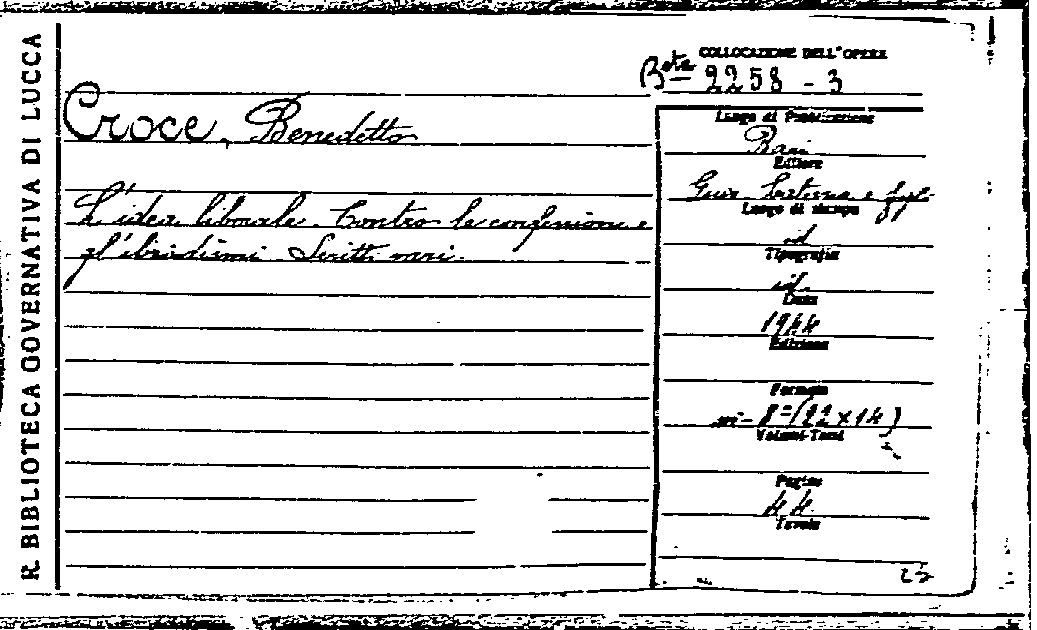 R. BIBLIOTECA GOVERNATIVA DI LUCCA
COLLOCAZIONE DELL'OPERA
Bta 2258 - 3
Croce, Benedetto
L'idea liberale. Contro le confusioni e
gl'ibridismi. Scritti vari.
Luogo di Pubblicazione
Bari
Editore
Gius. Laterza e figli
Luogo di stampa
id
Tipografia
id.
Data
1944
Edizione
Formato
in-8° (22 x 14)
Volumi-Tomi
Pagine
44
Tavole